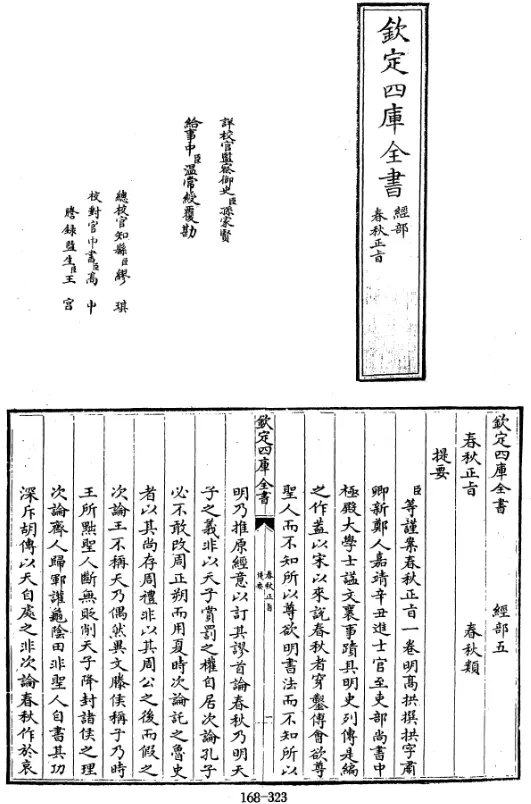 欽定四庫全書
經部
春秋正旨
詳校官監察御史臣孫家賢
給事中臣溫常綬覆勘
總校官知縣臣繆琪
校對官中書臣高中
謄錄監生臣王宮
欽定四庫全書
經部五
春秋正旨
春秋類
提要
臣等謹案春秋正旨一卷明髙拱撰拱字肅
卿新鄭人嘉靖辛丑進士官至吏部尚書中
極殿大學士諡文襄事蹟具明史列傳是編
之作蓋以宋以來說春秋者穿鑿傅會欲尊
聖人而不知所以尊欲明書法而不知所以
欽定四庫全書
春秋正旨
提要
一
明乃推原經意以訂其謬首論春秋乃明天
子之義非以天子賞罰之權自居次論孔子
必不敢改周正朔而用夏時次論託之魯史
者以其尚存周禮非以其周公之後而假之
次論王不稱天乃偶然異文滕侯稱子乃時
王所黜聖人斷無貶削天子降封諸侯之理
次論齊人歸鄆讙龜陰田非聖人自書其功
深斥胡傳以天自處之非次論春秋作於哀
168-323